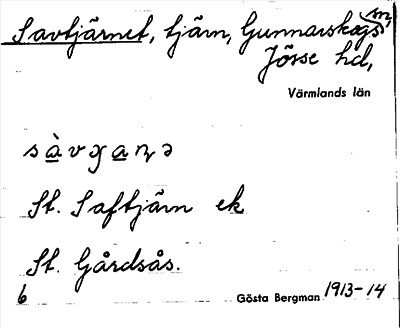 Savtjärnet, tjärn, Gunnarskogs sn,
Jösse hd,
Värmlands län
St. Saftjärn ek
St. Gårdsås.
6
Gösta Bergman 1913-14